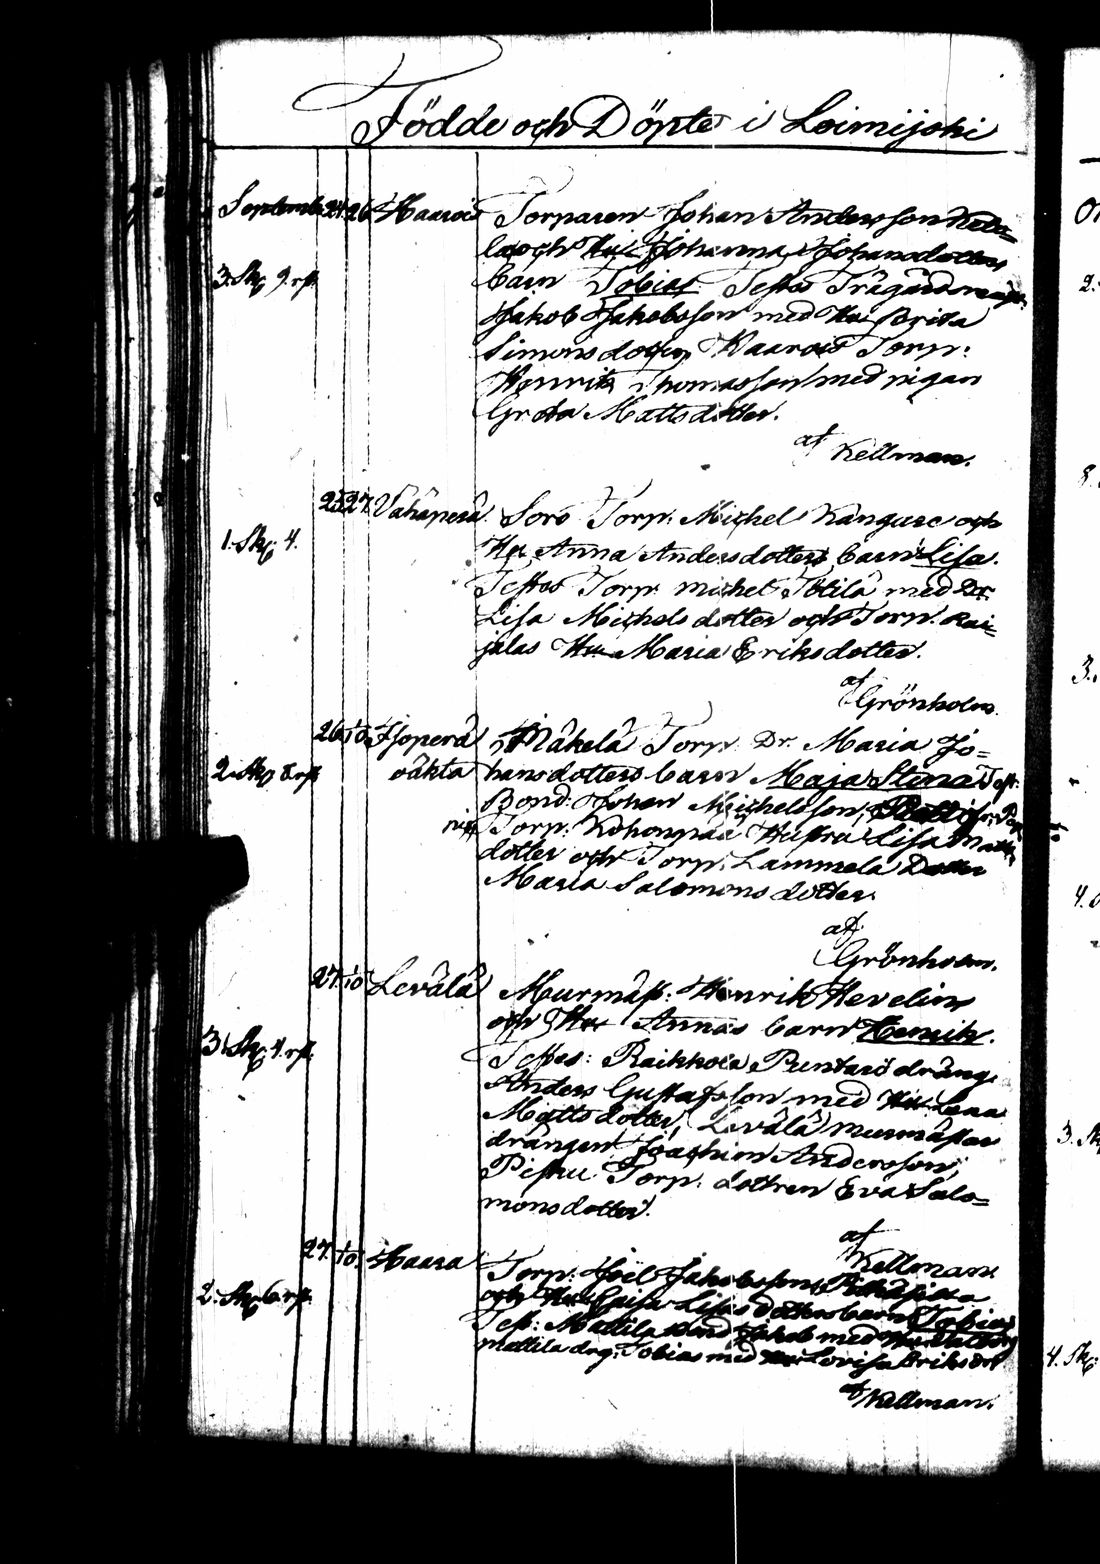 Födde och Döpte i Loimijoki
September 24. 26. Haaroi Torparen Johan Andersson
la och Hu: Johanna Johansdotters
3. Sk. 9. rst. barn Tobias Testes Trägårdsmäst:
Jakob Jakobsson med Hu: Brita
Simonsdotter, Haarois Torp:
Henrik Thomasson med pigan
Greta Mattsdotter.
af
Kellman.
25 27. Vähäperä. Soro Torp. Michel Kanguse och
1. Sk. 4. Hu Anna Andersdotters barn Lisa.
Testes Torp. Michel Ibtilä med Dr.
Lisa Michelsdotter och Torp. Rai=
jalas Hu Maria Eriksdotter.
af
Grönholm.
26 1/10 Isoperä Mäkelä Torp. Dr. Maria Jo=
2. Sk. 8 rst. oäkta hansdotters barn Maja Stina Test:
Bond. Johan Michelsson,
Torp. Kohonpää Hustru Lisa Matts
dotter och Torp. Lammela Dotter
Maria Salomonsdotter.
af
Grönholm.
27. 1/10 Levälä Murmäst: Henrik Hevelin
och Hu Annas barn Henrik.
3. Sk. 4. rst. Testes: Raikkola Puntarö dräng
Anders Gustafsson med Hu Lena
Mattsdotter, Levälä murmästar
drängen Joachim Andersson,
Pistku Torp. dottren Eva Salo=
monsdotter.
af
Kellman.
27. 1/10. Haara Torp: Joel Jakobsson
2. Sk. 6 rst. och Hu Caisa Lisas dotters barn Tobias
Test: Mattila Bond Jakob med Hu
mattila drg: Tobias med Lovisa Eriksdr
af Kellman.